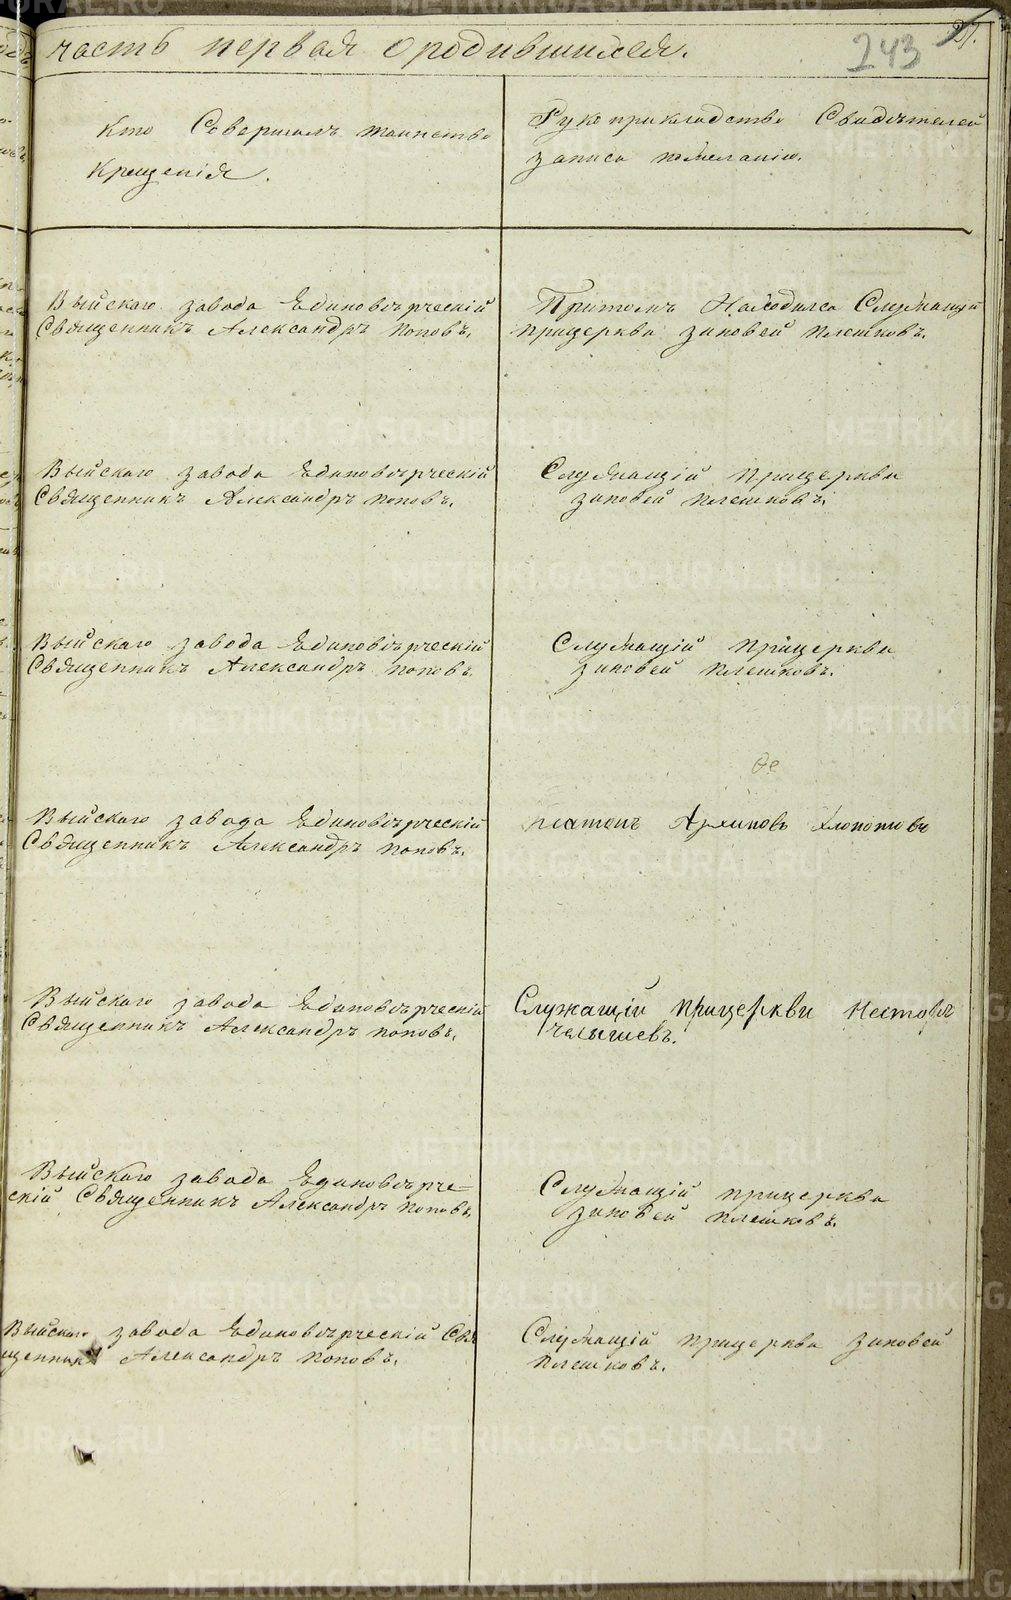 часть первая о родившихся.
243
Кто Совершалъ таинство
Крещенія.
Рукоприкладство Свидѣтелей
записи по желанію.
Выйскаго завода Единовѣрческій
Священникъ Александръ Поповъ.
Притомъ Находился Служащій
прицеркви зиновей Плешковъ.
Выйскаго завода Единовѣрческій
Священникъ Александръ Поповъ.
Служащій прицеркви
зиновей Плешковъ.
Выйскаго завода Единовѣрческій
Священникъ Александръ Поповъ.
Служащій прицеркви
зиновей Плешковъ.
Выйскаго завода Единовѣрческій
Священникъ Александръ Поповъ.
платонъ Архиповъ Хлопотовъ
Выйскаго завода Единовѣрческій
Священникъ Александръ поповъ.
Служащій прицеркви Несторъ
Челышевъ.
Выйскаго завода Единовѣрче=
скій Священникъ Александръ поповъ.
Служащій прицеркви
зиновей плешковъ.
Выйскаго завода Единовѣрческій Свя
щенникъ Александръ поповъ.
Служащій прицеркви Зиновей
Плешковъ.
METRIKI.GASO-URAL.RU